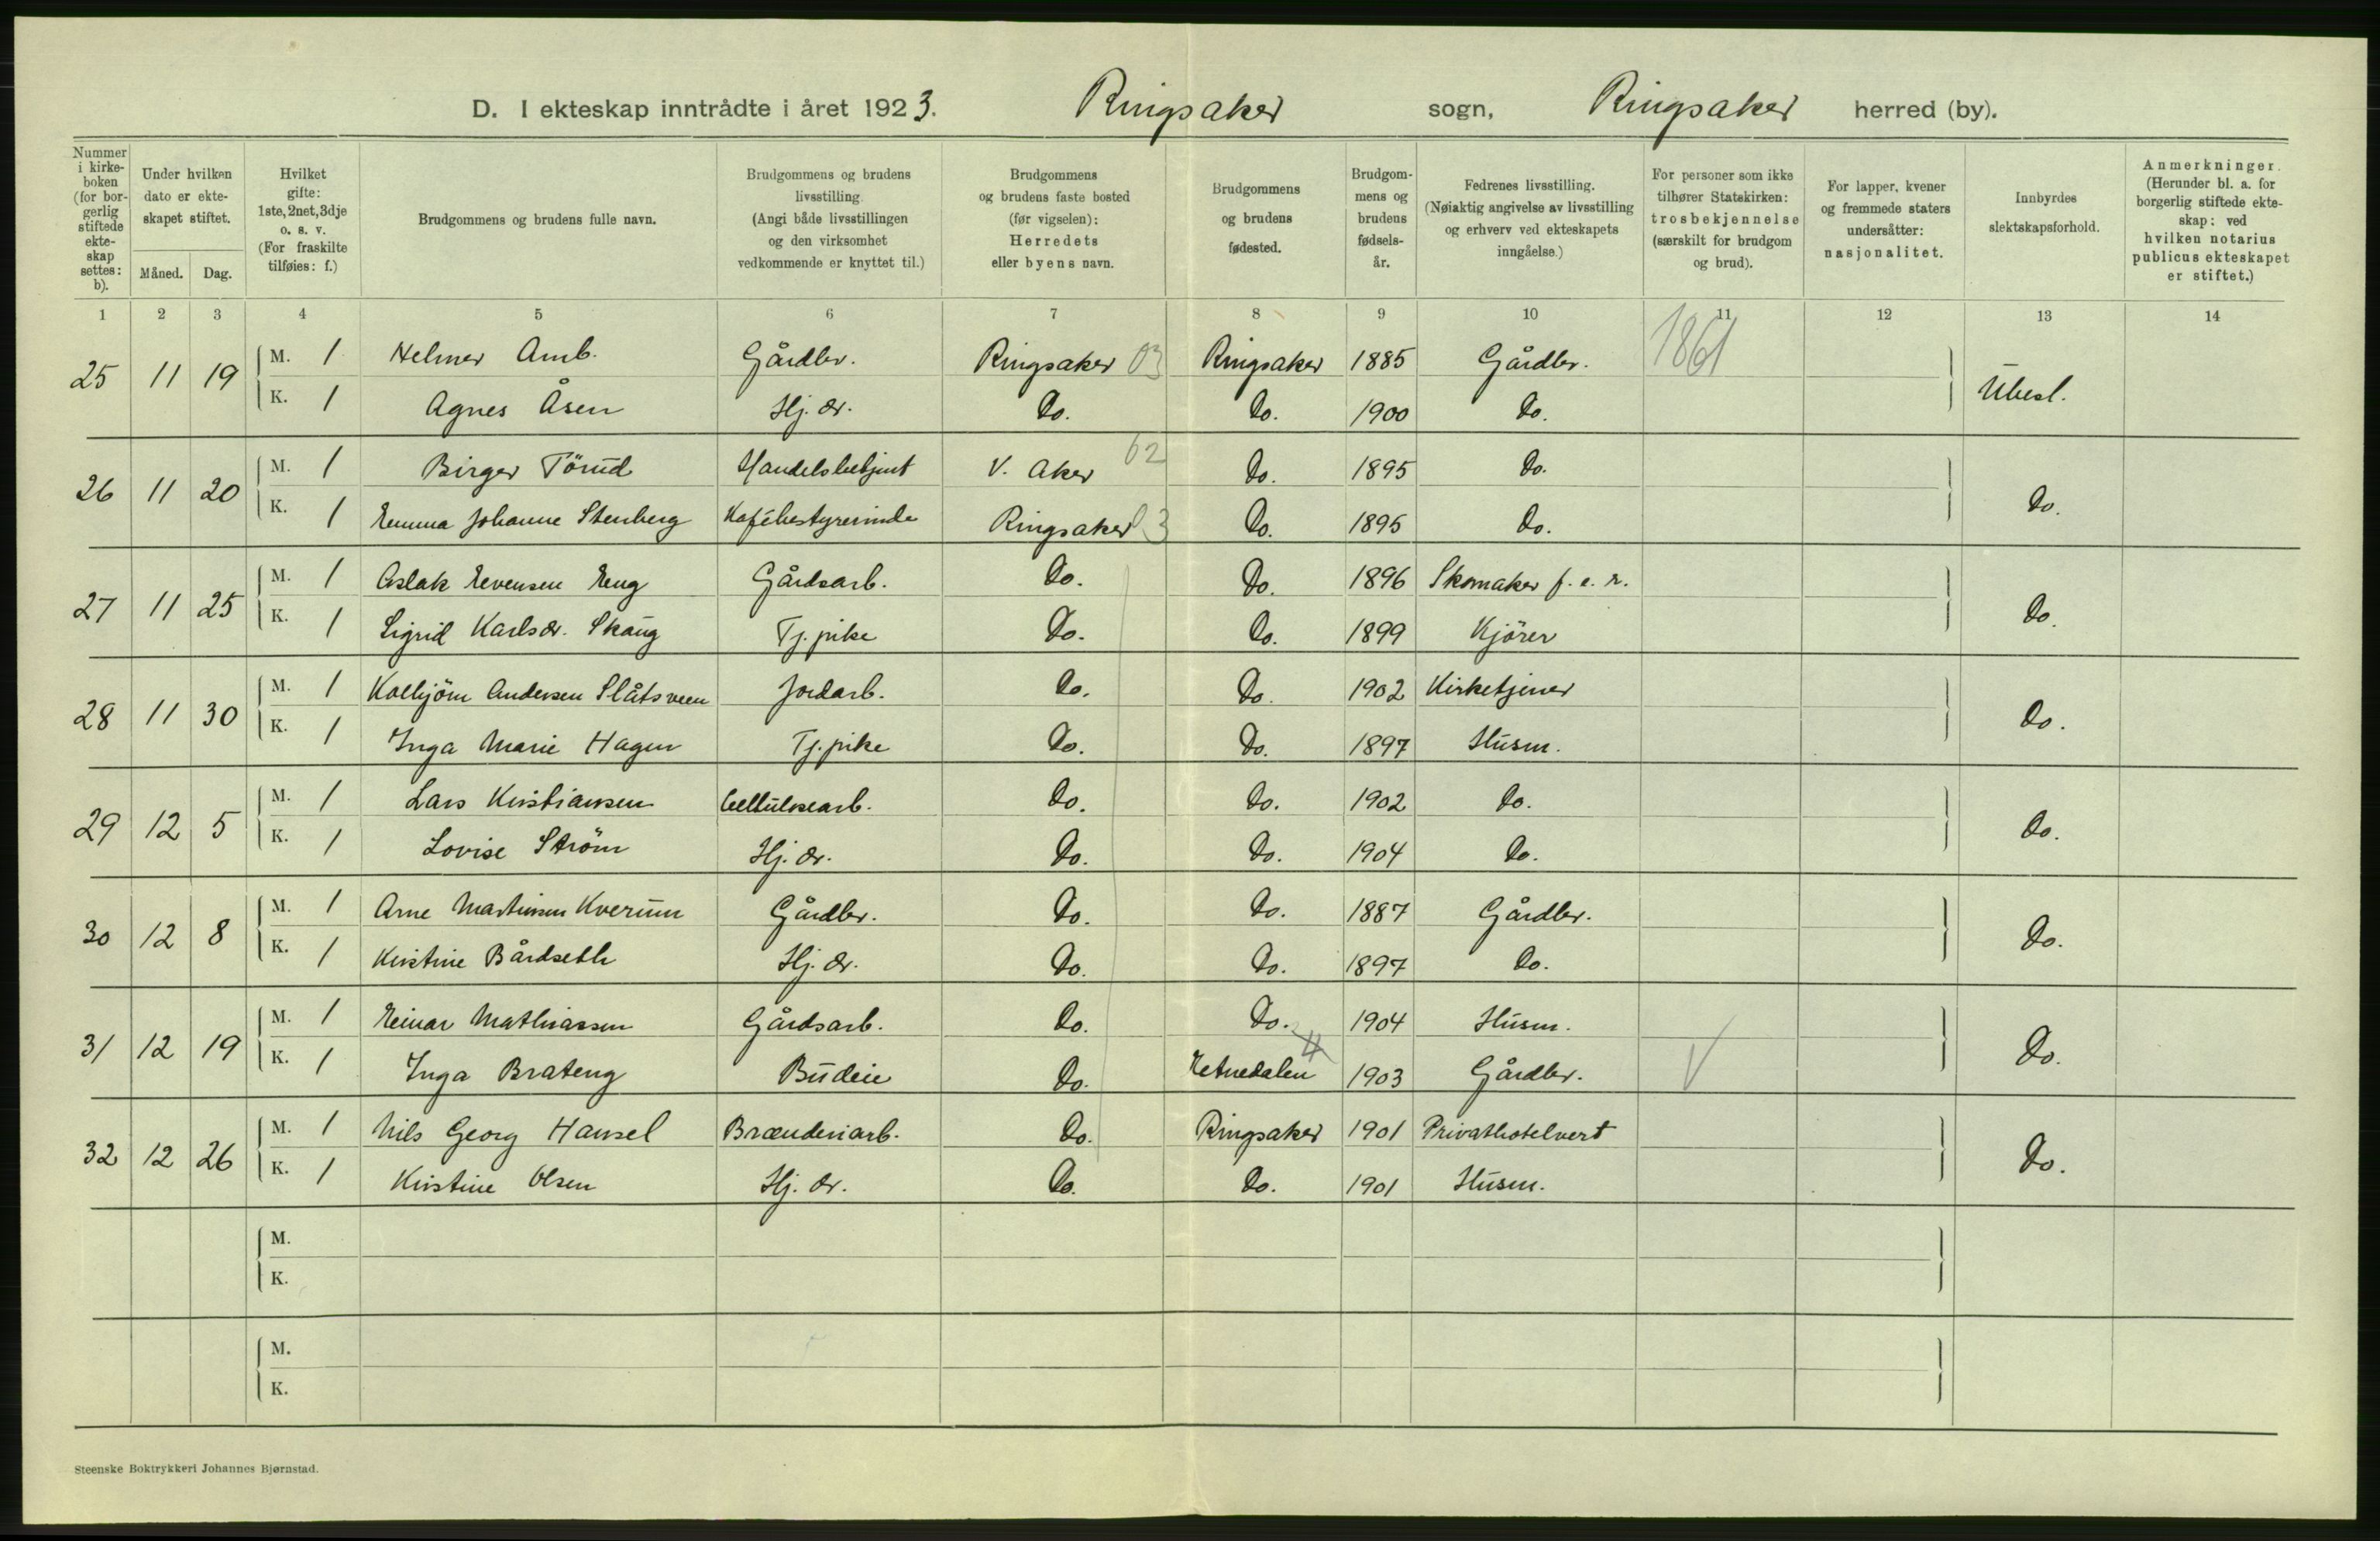 D. I ekteskap inntrådte i året 1923. Ringsaker sogn, Ringsaker herred (by).
Nummer i kirkeboken (for borgerlig stiftede ekteskap settes: b).
Under hvilken dato er ekteskapet stiftet.
Måned. Dag.
Hvilket gifte: 1ste, 2net, 3dje o. s. v. (For fraskilte tilføies: f.)
Brudgommens og brudens fulle navn.
Brudgommens og brudens livsstilling. (Angi både livsstillingen og den virksomhet vedkommende er knyttet til.)
Brudgommens og brudens faste bosted (før vigselen): Herredets eller byens navn.
Brudgommens og brudens fødested.
Brudgommens og brudens fødsels-år.
Fedrenes livsstilling. (Nøiaktig angivelse av livsstilling og erhverv ved ekteskapets inngåelse.)
For personer som ikke tilhører Statskirken: trosbekjennelse (særskilt for brudgom og brud).
For lapper, kvener og fremmede staters undersåtter: nasjonalitet.
Innbyrdes slektskapsforhold.
Anmerkninger. (Herunder bl. a. for borgerlig stiftede ekteskap: ved hvilken notarius publicus ekteskapet er stiftet.)
1 2 3 4 5 6 7 8 9 10 11 12 13 14
25 11 19 M. 1 Helmer Amb. Gårdbr. Ringsaker 03 Ringsaker 1885 Gårdbr. 1861 Ubesl.
K. 1 Agnes Åsen Hj. dr. Do. Do. 1900 Do.
26 11 20 M. 1 Birger Törud Handelsbetjent V. Aker 02 Do. 1895 Do. Do.
K. 1 Emma Johanne Stenberg Kafébestyrerinde Ringsaker 03 Do. 1895 Do.
27 11 25 M. 1 Aslak Evensen Eng Gårdsarb. Do. Do. 1896 Skomaker f. e. r. Do.
K. 1 Sigrid Karlsdr. Skaug Tj. pike Do. Do. 1899 Kjörer
28 11 30 M. 1 Kolbjörn Andersen Slåtsveen Jordarb. Do. Do. 1902 Kirketjener Do.
K. 1 Inga Marie Hagen Tj. pike Do. Do. 1897 Husm.
29 12 5 M. 1 Lars Kristiansen Cellulosearb. Do. Do. 1902 Do. Do.
K. 1 Lovise Ström Hj. dr. Do. Do. 1904 Do.
30 12 8 M. 1 Arne Martinsen Kverum Gårdbr. Do. Do. 1887 Gårdbr. Do.
K. 1 Kristine Bårdseth Hj. dr. Do. Do. 1897 Do.
31 12 19 M. 1 Einar Mathiassen Gårdsarb. Do. Do. 1904 Husm. Do.
K. 1 Inga Brateng Budeie Do. Etnedalen 1903 Gårdbr.
32 12 26 M. 1 Nils Georg Hansel Brænderiarb. Do. Ringsaker 1901 Privathotelvert Do.
K. 1 Kristine Olsen Hj. dr. Do. Do. 1901 Husm.
M.
K.
M.
K.
Steenske Boktrykkeri Johannes Bjørnstad.